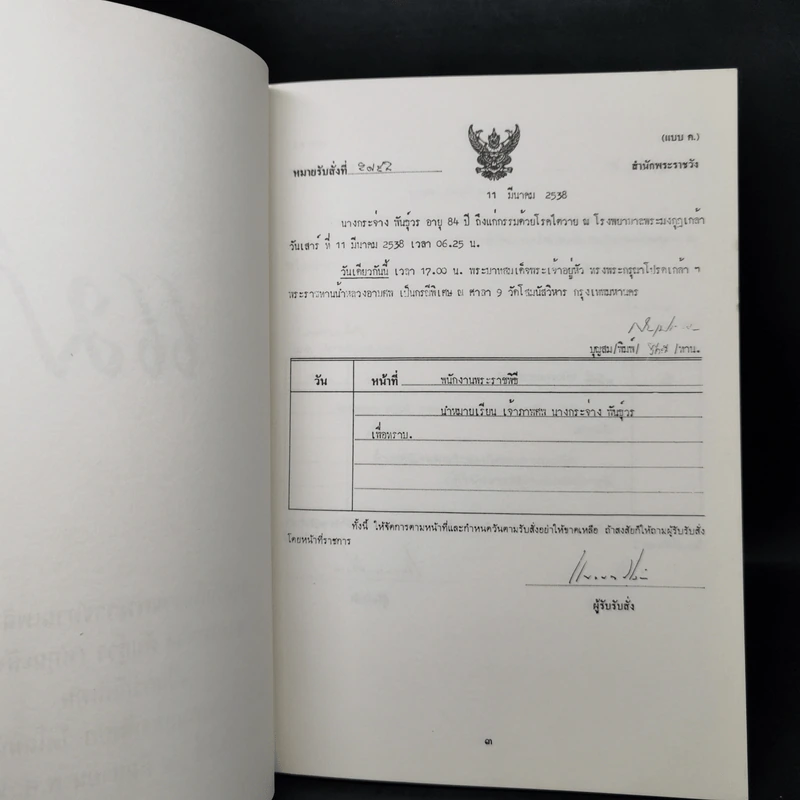 (แบบ ค.)
หมายรับสั่งที่ ๒๗๕๒ สำนักพระราชวัง
11 มีนาคม 2538
นางกระจ่าง พันธุ์วร อายุ 84 ปี ถึงแก่กรรมด้วยโรคไตวาย ณ โรงพยาบาลพระมงกุฎเกล้า
วันเสาร์ ที่ 11 มีนาคม 2538 เวลา 06.25 น.
วันเดียวกันนี้ เวลา 17.00 น. พระบาทสมเด็จพระเจ้าอยู่หัว ทรงพระกรุณาโปรดเกล้า ฯ
พระราชทานน้ำหลวงอาบศพ เป็นกรณีพิเศษ ณ ศาลา 9 วัดโสมนัสวิหาร กรุงเทพมหานคร
บุญสม/พิมพ์/ /ทาน.
วัน หน้าที่ พนักงานพระราชพิธี
นำหมายเรียน เจ้าภาพศพ นางกระจ่าง พันธุ์วร
เพื่อทราบ.
ทั้งนี้ ให้จัดการตามหน้าที่และกำหนดวันตามรับสั่งอย่าให้ขาดเหลือ ถ้าสงสัยก็ให้ถามผู้รับรับสั่ง
โดยหน้าที่ราชการ
ผู้รับรับสั่ง
๓